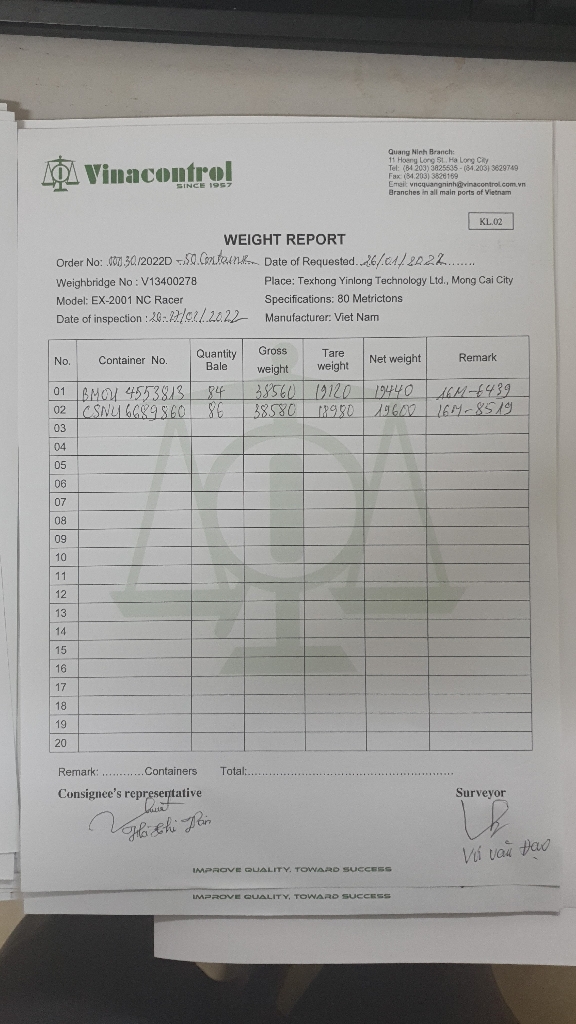 Vinacontrol
SINCE 1957
Quang Ninh Branch:
11 Hoang Long St., Ha Long City
Tel: (84.203) 3825535 - (84.203) 3629749
Fax: (84.203) 3826169
Email: vncquangninh@vinacontrol.com.vn
Branches in all main ports of Vietnam
KL.02
WEIGHT REPORT
Order No: 00030/2022D - 50 Container Date of Requested 26/01/2022
Weighbridge No : V13400278 Place: Texhong Yinlong Technology Ltd., Mong Cai City
Model: EX-2001 NC Racer Specifications: 80 Metrictons
Date of inspection : 26-27/01/2022 Manufacturer: Viet Nam
No. Container No. Quantity Bale Gross weight Tare weight Net weight Remark
01 BMOU 4553813 84 38560 19120 19440 16M-6439
02 CSNU 6689860 86 38580 18980 19600 16M-8519
03
04
05
06
07
08
09
10
11
12
13
14
15
16
17
18
19
20
Remark: ............Containers Total:..........................................................
Consignee's representative Surveyor
Vũ Văn Đạo
IMPROVE QUALITY, TOWARD SUCCESS
IMPROVE QUALITY, TOWARD SUCCESS